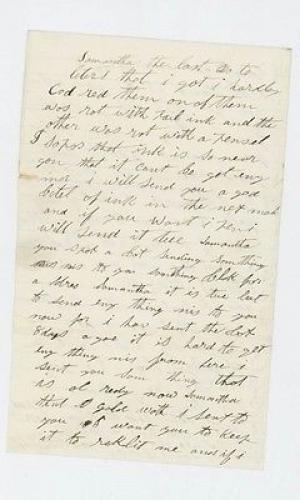 Samantha the last to
leters that i got i hardly
Cod red them on of them
was rot with Pail ink and the
other was rot with a pensel
I sopos that ink is so near
gon that it cant be got eny
mor i will send you a god
botel of ink in the next mail
and if you want i pen i
will send it tue Samantha
you spok a bot sending something
nis to you somthing for
a dres Samantha it is tue lat
to send eny thing nis to you
now for i hav sent the last
8 days a goe it is hard to get
eny thing nis from hire i
sent you som thing that
is ol redy now Samantha
that gold i sent to
you i want you to keep
it to reklit me and if i